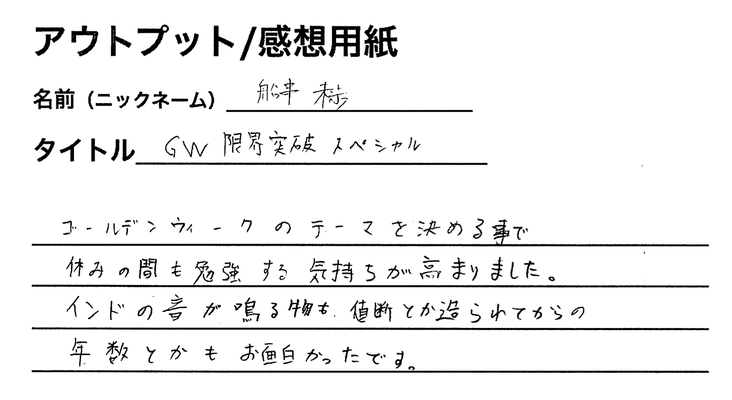 アウトプット/感想用紙
名前（ニックネーム） 船津
タイトル GW 限界突破 スペシャル
ゴールデンウィークのテーマを決める事で
休みの間も勉強する気持ちが高まりました。
インドの音が鳴る物も、値断とか造られてからの
年数とかもお面白かったです。